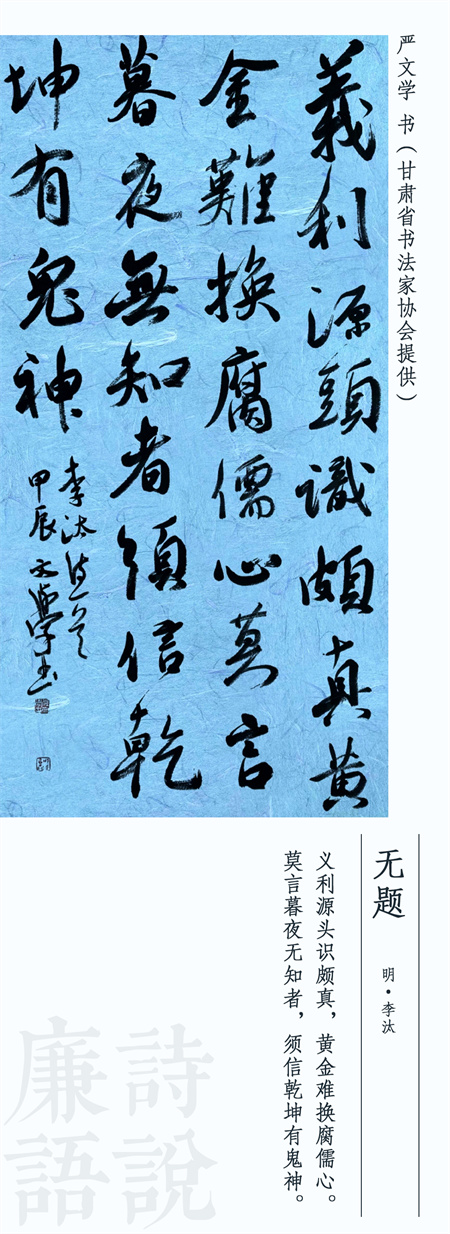 严文学 书（甘肃省书法家协会提供）
義利源頭識頗真黄
金難換腐儒心莫言
暮夜無知者須信乾
坤有鬼神
李汰诗一首
甲辰 文學书
无题
明·李汰
义利源头识颇真，黄金难换腐儒心。
莫言暮夜无知者，须信乾坤有鬼神。
詩說
廉語